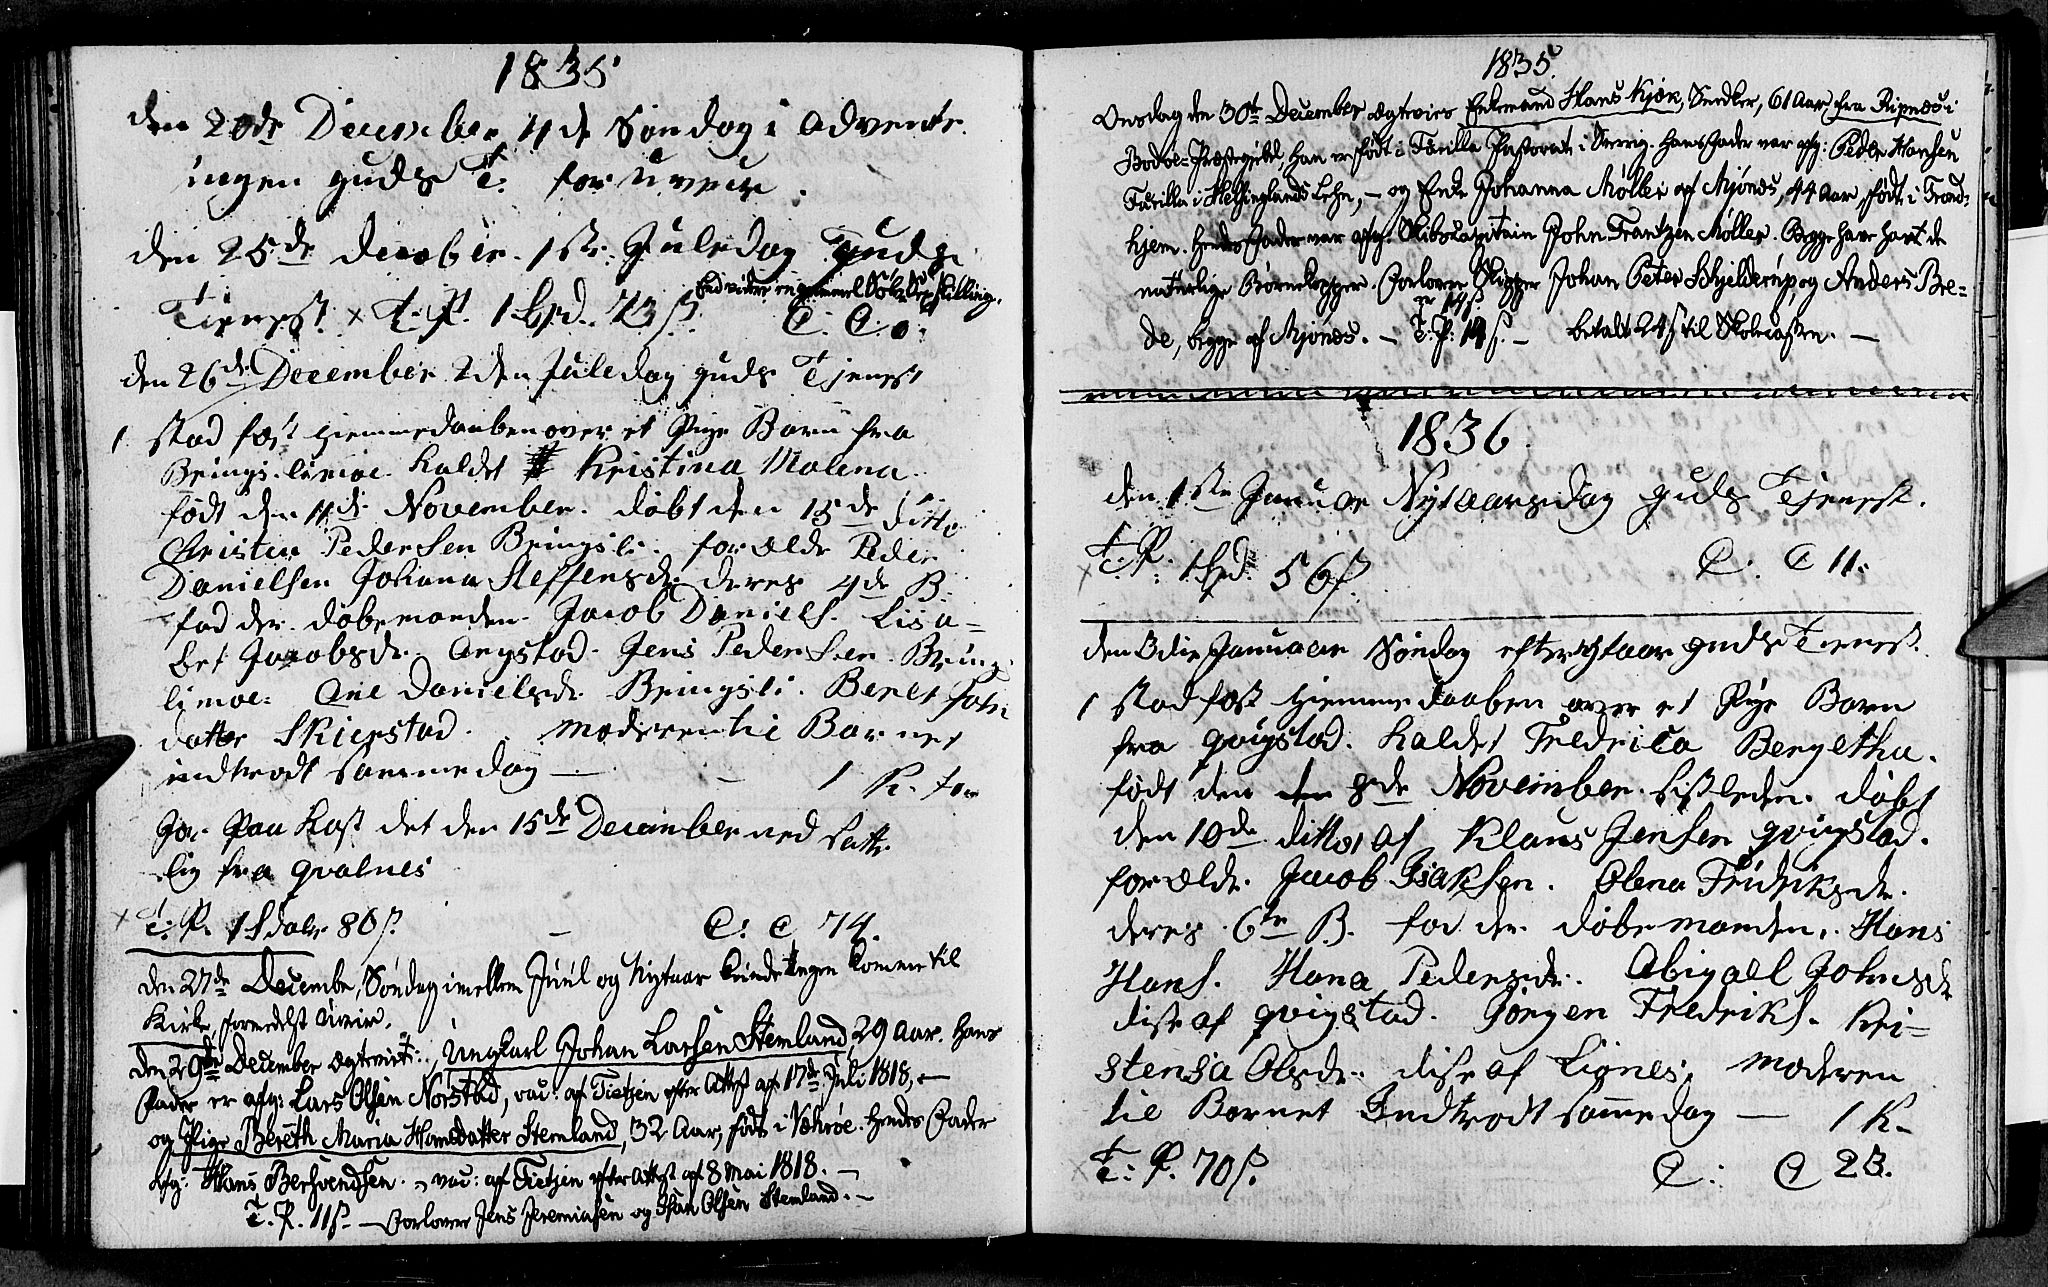 1835
den 20de December 4de Søndag i Advent.
ingen guds T. for uveir.
den 25de december. 1ste Juledag Guds
Tienest. T. P. 1 Spd. 73 ß. C. C 0:
den 26de December 2den Juledag guds Tjenest
1 stadfæst Hiemmedaaben over et Pige Barn fra
Bringslimoe kaldet Kristina Malena
født den 11de November. døbt den 15de ditto
Christen Pedersen Bringsli. forældr Peder
Danielsen Johana Steffensdr. deres 4de B.
fad der. døbemanden. Jacob Daniels. Lisa-
bet Jacobsdr. Ongstad. Jens Pedersen. Brings
limoe. Ane Danielsdr. Bringsli. Beret Johns
datter Skierstad. Moderen til Barnet
indtrodt samme dag — 1 K. kone
Jor Paa Kast det den 15de December ned satte
lig fra Qvalnes
T. P. 1 Sdalr 86 ß. — C. C 74.
den 27de Decembr, Søndag imellem Juul og Nytaar kunde Ingen komme til
Kirke, formedelst Uveir.
den 29de December Ægteviet: Ungkarl Johan Larsen Stemland, 29 Aar. Hans
Fader er afg: Lars Olsen Norstad, vac: af Tietjen efter Attest af 17de Juli 1818, —
og Pige Bereth Maria Hansdatter Stemland, 32 Aar, født i Værøe. Hendes Fader
Afg: Hans Bersvendsen. — vac: af Tietjen efter Attest af 8 Mai 1818. —
T. P. 11 ß — Forlovere Jens Jeremiasen og Johan Olsen Stemland. —
1835.
Onsdag den 30te December Ægtevies Enkemand Hans Kjøk, Snedker, 61 Aar fra Ripnæs i
Bodøe-Præstegjeld, Han er født i Färilla Pastorat i Sverrig. Hans Fader var afg: Peder Hansen
Färilla i Helsinglands Lehn, — og Enke Johanna Møller af Mjønæs, 44 Aar, født i Trond-
hjem. Hendes Fader var afg: Skibscapitain John Frantzen Møller. Begge have havt de
naturlige Børnekopper. Forlovere Skipper Johan Peter Schjelderup, og Anders Bre-
de, begge af Mjønæs. — T: P: 14 ß. — betalt 24 ß til Skolecassen. —
1836
den 1ste Januar Nytaarsdag guds Tjenest.
T. P. 1 Spd. 56 ß. C. C 11:
den 3die Januar Søndag efter Nytaar guds Tienest.
1 stadfæst Hiemmedaaben over et Pige Barn
fra Qvigstad. kaldet Fredrica Bergetha.
født den 8de November sistleden. døbt
den 10de ditto af Klaus Jensen Qvigstad.
forældr. Jacob Isaksen. Olena Fridriksdr.
deres 6te B. fad der. døbemanden. Hans
Hans. Hana Pedersdr. Abigael Johnsdr
disse af Qvigstad. Jörgen Fredriks. Kri-
stensa Olsdr. disse af Lignes. Moderen
til Barnet Indtrodt samme dag — 1 K.
T: P. 70 ß. C: C 23.